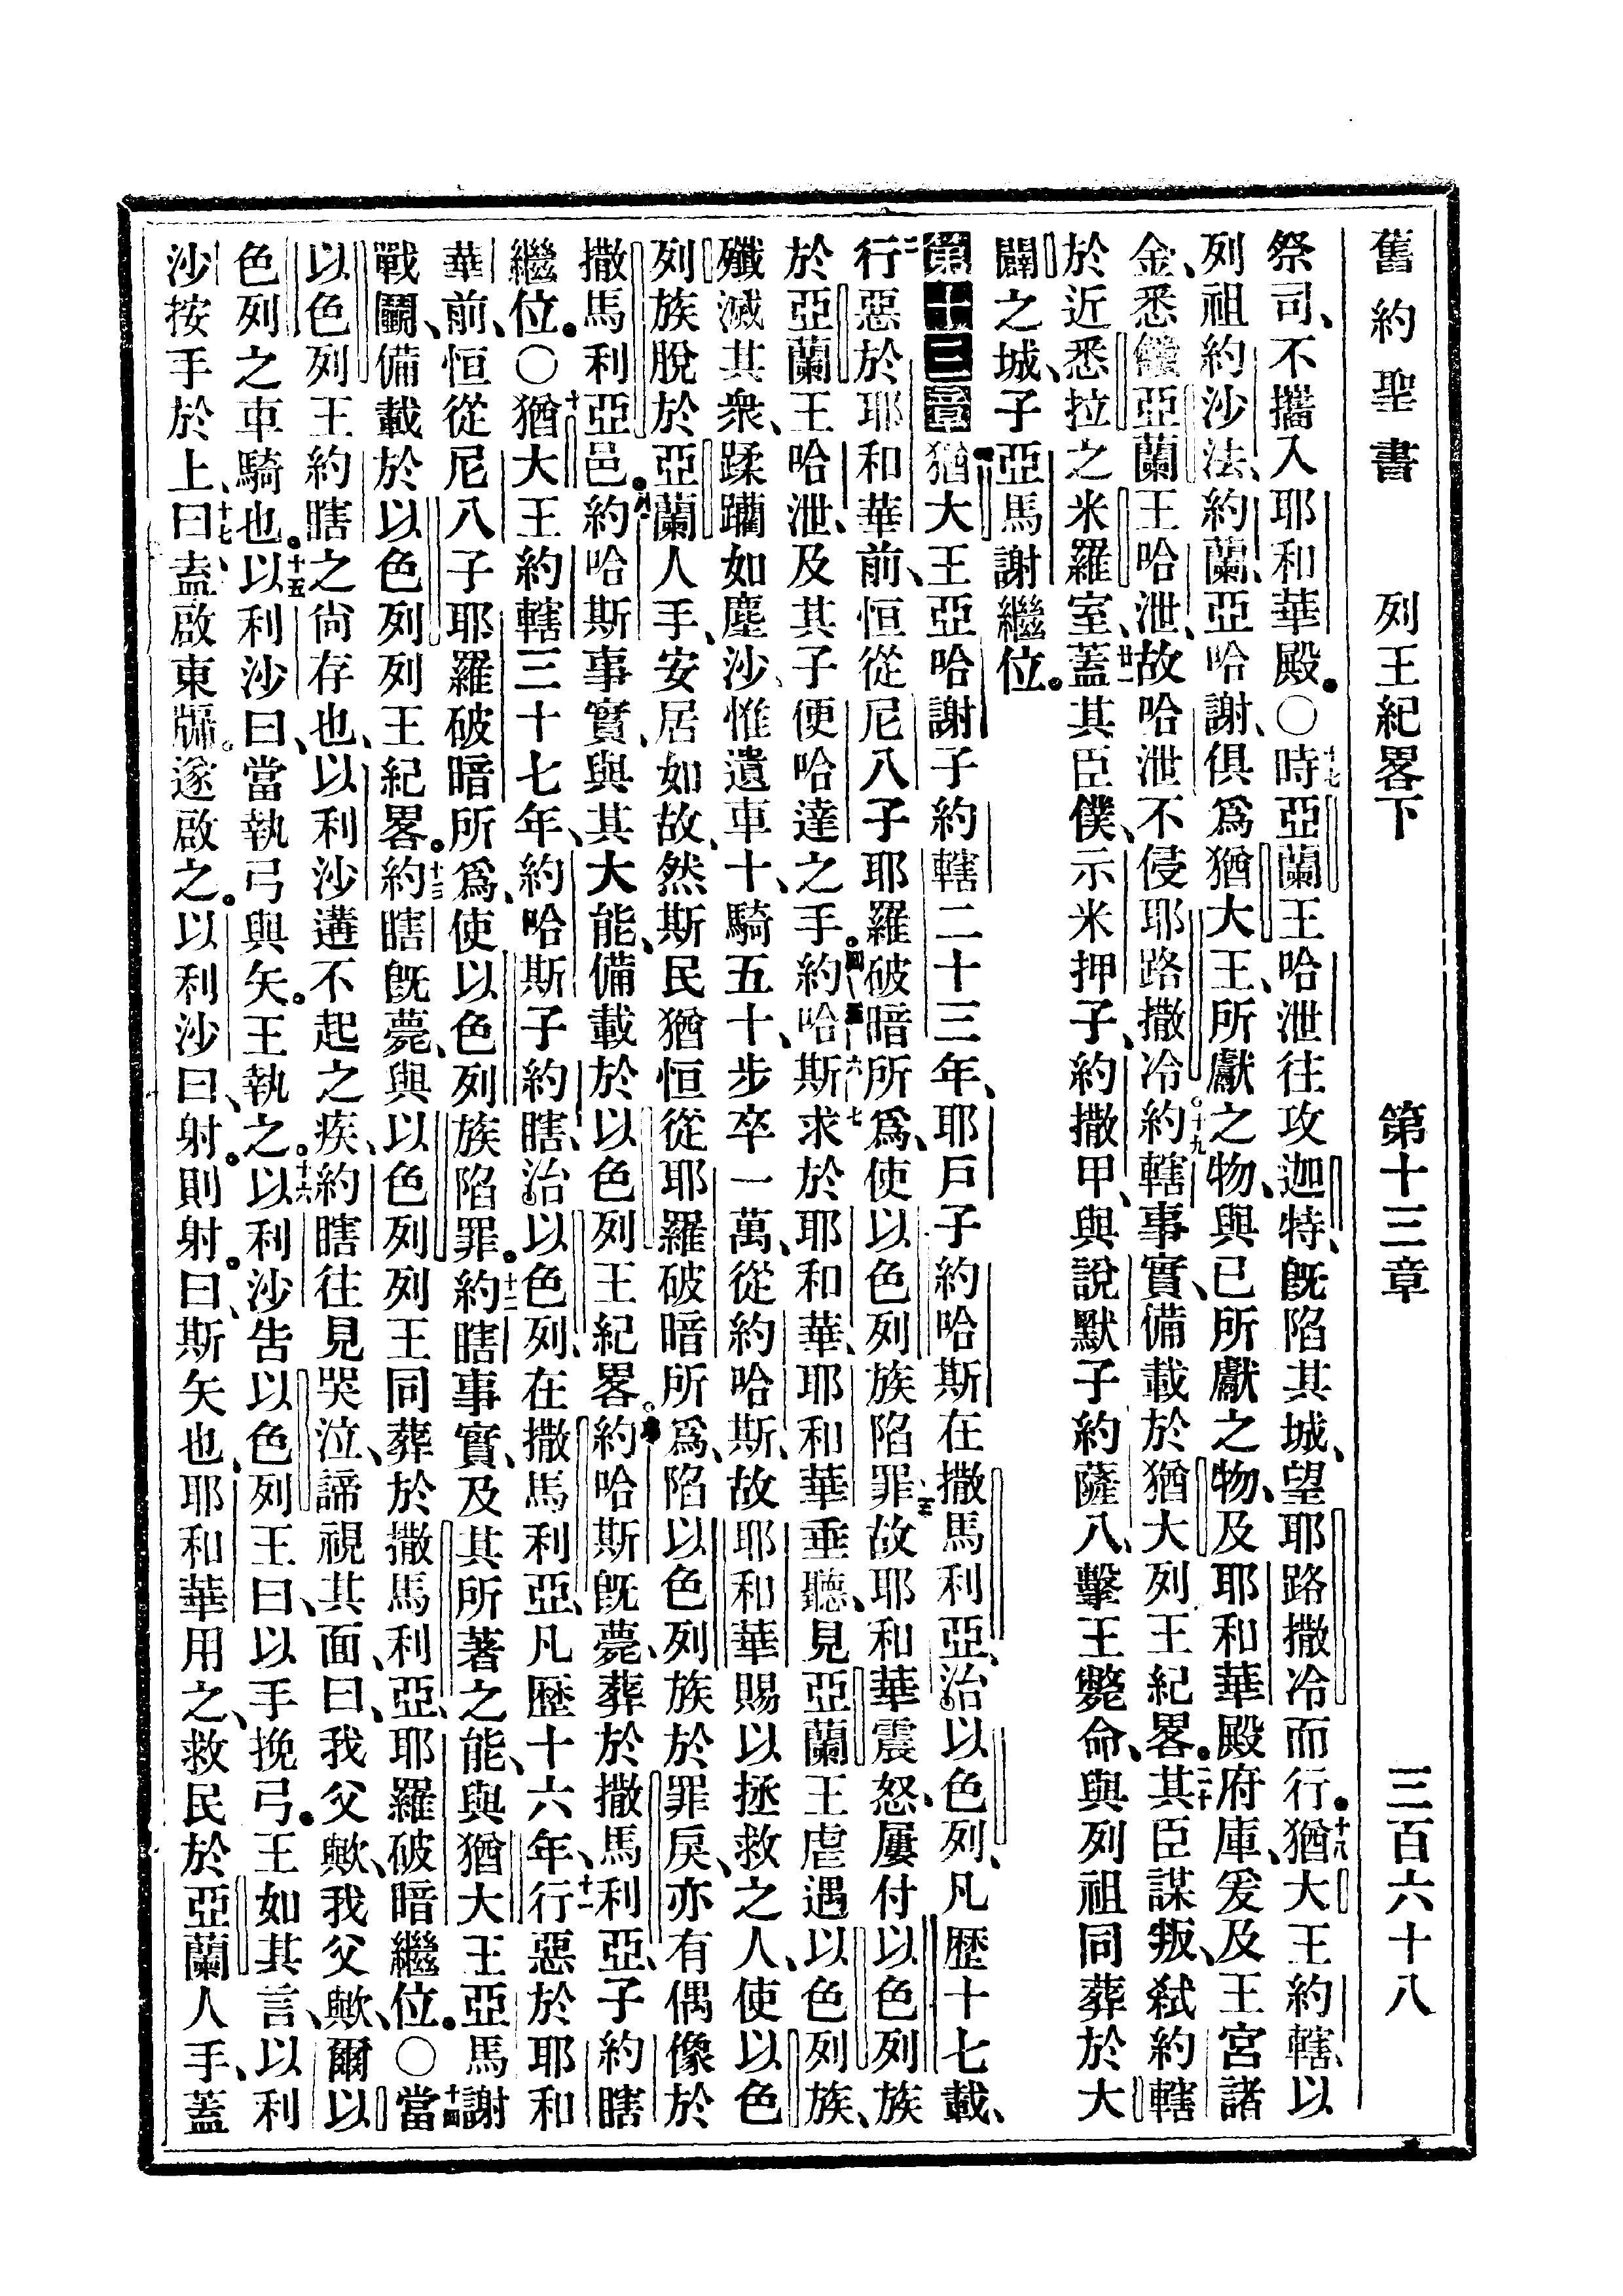 舊約聖書 列王紀畧下 第十三章 三百六十八
祭司、不攜入耶和華殿。〇十七時亞蘭王哈泄往攻迦特、旣陷其城、望耶路撒冷而行。十八猶大王約轄、以
列祖約沙法、約蘭、亞哈謝、俱爲猶大王、所獻之物、與已所獻之物、及耶和華殿府庫、爰及王宮諸
金、悉饋亞蘭王哈泄、故哈泄不侵耶路撒冷。十九約轄事實、備載於猶大列王紀畧。二十其臣謀叛、弑約轄
於近悉拉之米羅室、廿一蓋其臣僕、示米押子、約撒甲、與說默子約薩八、擊王斃命、與列祖同葬於大
闢之城、子亞馬謝繼位。
第十三章 猶大王亞哈謝子約轄二十三年、耶戶子約哈斯在撒馬利亞、治以色列、凡歷十七載、
二行惡於耶和華前、恒從尼八子耶羅破暗所爲、使以色列族陷罪三故耶和華震怒、屢付以色列族
於亞蘭王哈泄、及其子便哈達之手。四約哈五斯六求七於耶和華、耶和華垂聽、見亞蘭王虐遇以色列族、
殲滅其衆、蹂躪如塵沙、惟遺車十、騎五十、步卒一萬、從約哈斯、故耶和華賜以拯救之人、使以色
列族脫於亞蘭人手、安居如故、然斯民猶恒從耶羅破暗所爲、陷以色列族於罪戾、亦有偶像於
撒馬利亞邑。八約哈斯事實、與其大能、備載於以色列王紀畧。九約哈斯旣薨、葬於撒馬利亞、子約瞎
繼位。〇十猶大王約轄三十七年、約哈斯子約瞎、治以色列、在撒馬利亞、凡歷十六年、十一行惡於耶和
華前、恒從尼八子耶羅破暗所爲、使以色列族陷罪。十二約瞎事實、及其所著之能、與猶大王亞馬謝
戰鬭、備載於以色列列王紀畧。十三約瞎旣薨、與以色列列王同葬於撒馬利亞、耶羅破暗繼位。〇十四當
以色列王約瞎之尙存也、以利沙遘不起之疾、約瞎往見哭泣、諦視其面曰、我父歟、我父歟、爾以
色列之車騎也。十五以利沙曰、當執弓與矢。王執之。十六以利沙吿以色列王曰、以手挽弓。王如其言、以利
沙按手於上、十七曰、盍啟東牖。遂啟之。以利沙曰、射。則射。曰、斯矢也、耶和華用之、救民於亞蘭人手、蓋